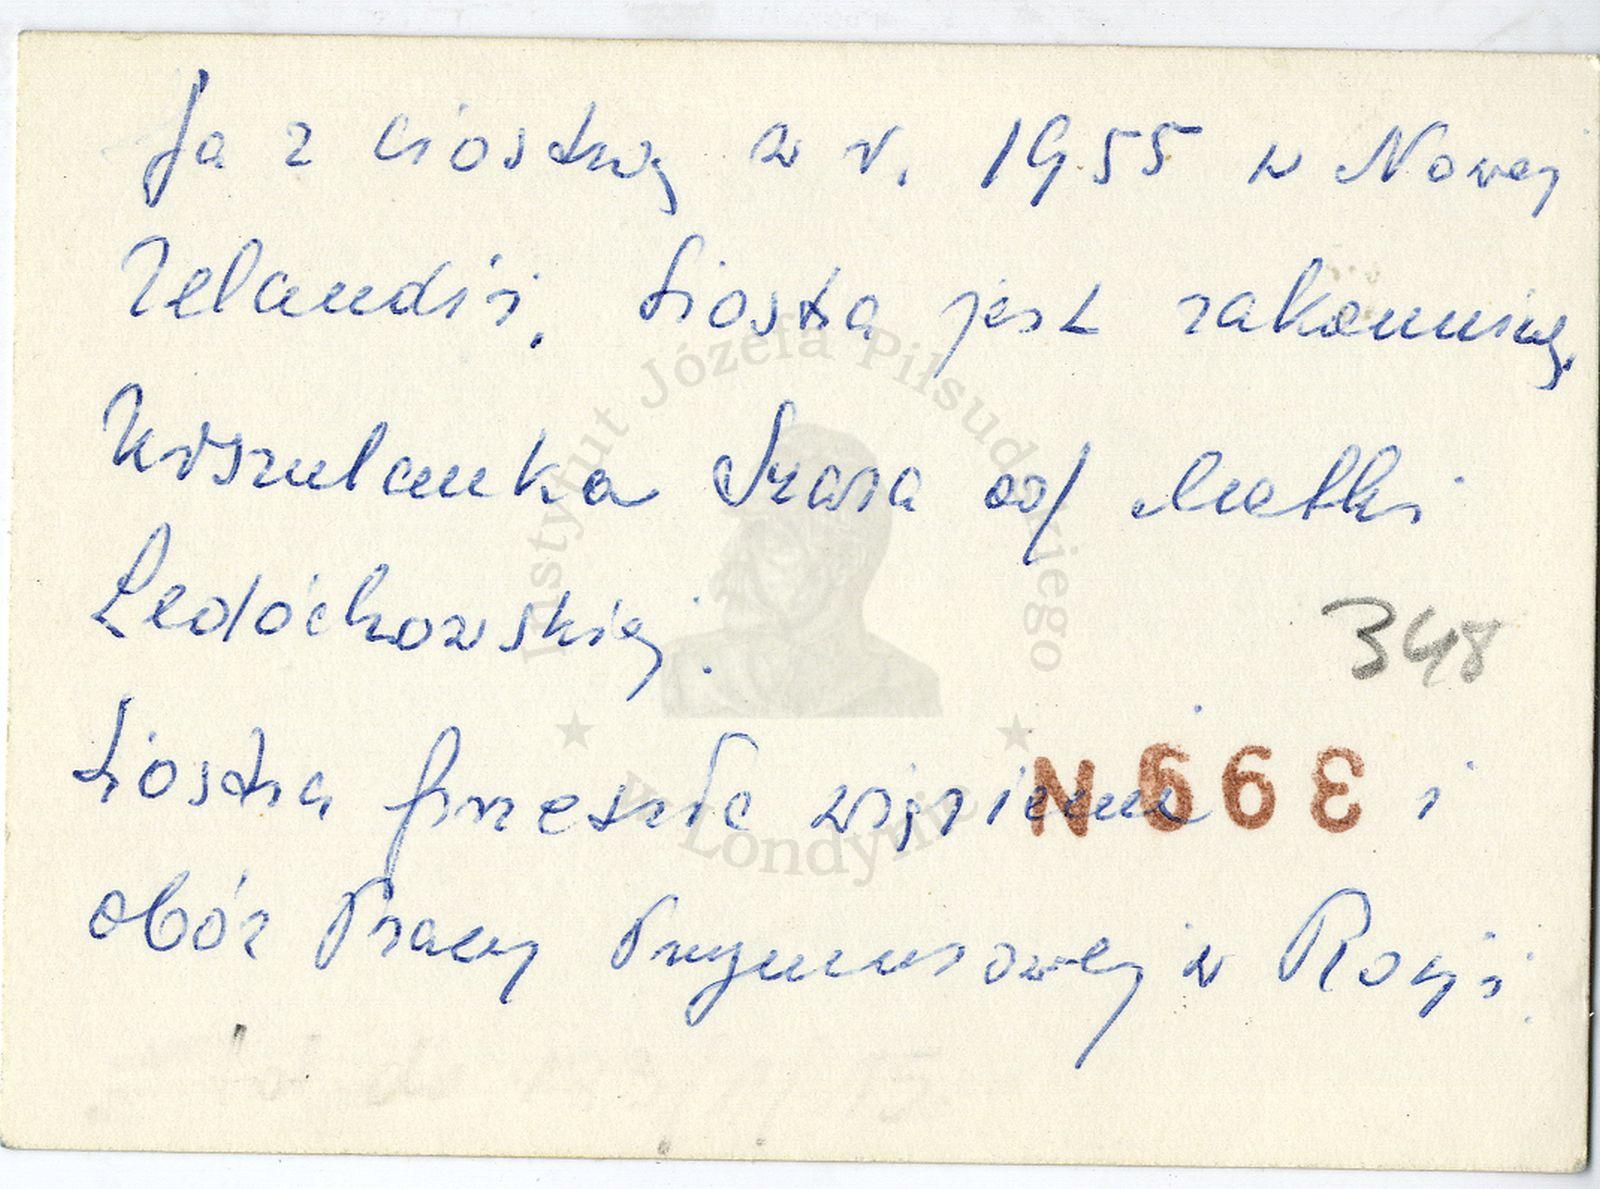 Ja z siostrą w r. 1955 w Nowej
Zelandii. Siostra jest zakonnicą,
Urszulanka Szara od Matki
Ledóchowskiej.
348
Siostra przeszła więzienie i
N 993
obóz Pracy Przymusowej w Rosji.
Instytut Józefa Piłsudskiego
w Londynie